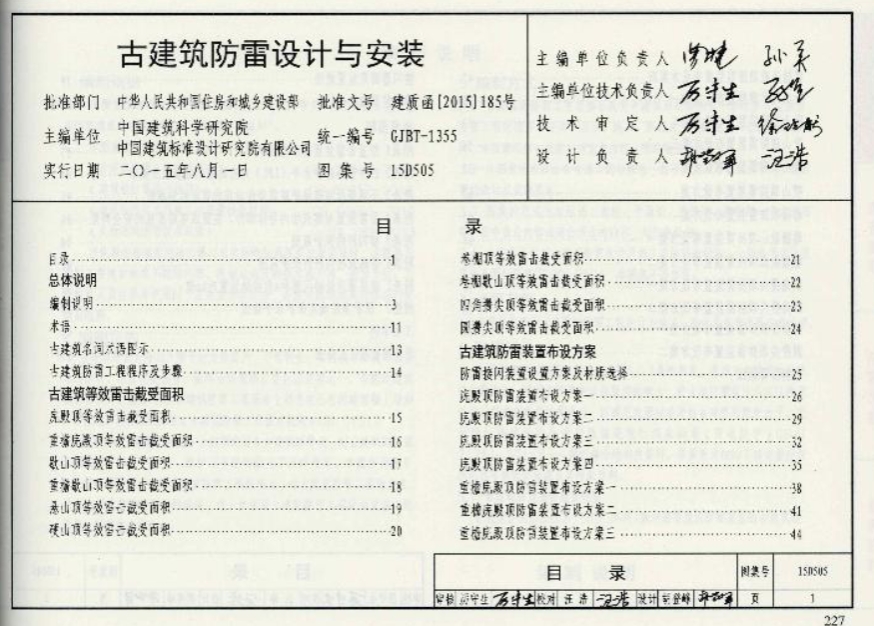 古建筑防雷设计与安装
批准部门 中华人民共和国住房和城乡建设部 批准文号 建质函[2015]185号
主编单位 中国建筑科学研究院
中国建筑标准设计研究院有限公司 统一编号 GJBT-1355
实行日期 二〇一五年八月一日 图集号 15D505
主编单位负责人
主编单位技术负责人
技术审定人
设计负责人
目 录
目录 1
总体说明
编制说明 3
术语 11
古建筑名词术语图示 13
古建筑防雷工程程序及步骤 14
古建筑等效雷击截受面积
庑殿顶等效雷击截受面积 15
重檐庑殿顶等效雷击截受面积 16
歇山顶等效雷击截受面积 17
重檐歇山顶等效雷击截受面积 18
悬山顶等效雷击截受面积 19
硬山顶等效雷击截受面积 20
卷棚顶等效雷击截受面积 21
卷棚歇山顶等效雷击截受面积 22
四角攒尖顶等效雷击截受面积 23
圆攒尖顶等效雷击截受面积 24
古建筑防雷装置布设方案
防雷接闪装置设置方案及材质选择 25
庑殿顶防雷装置布设方案一 26
庑殿顶防雷装置布设方案二 29
庑殿顶防雷装置布设方案三 32
庑殿顶防雷装置布设方案四 35
重檐庑殿顶防雷装置布设方案一 38
重檐庑殿顶防雷装置布设方案二 41
重檐庑殿顶防雷装置布设方案三 44
目 录 图集号 15D505
审核 校对 汪浩 汪浩 设计 页 1
227